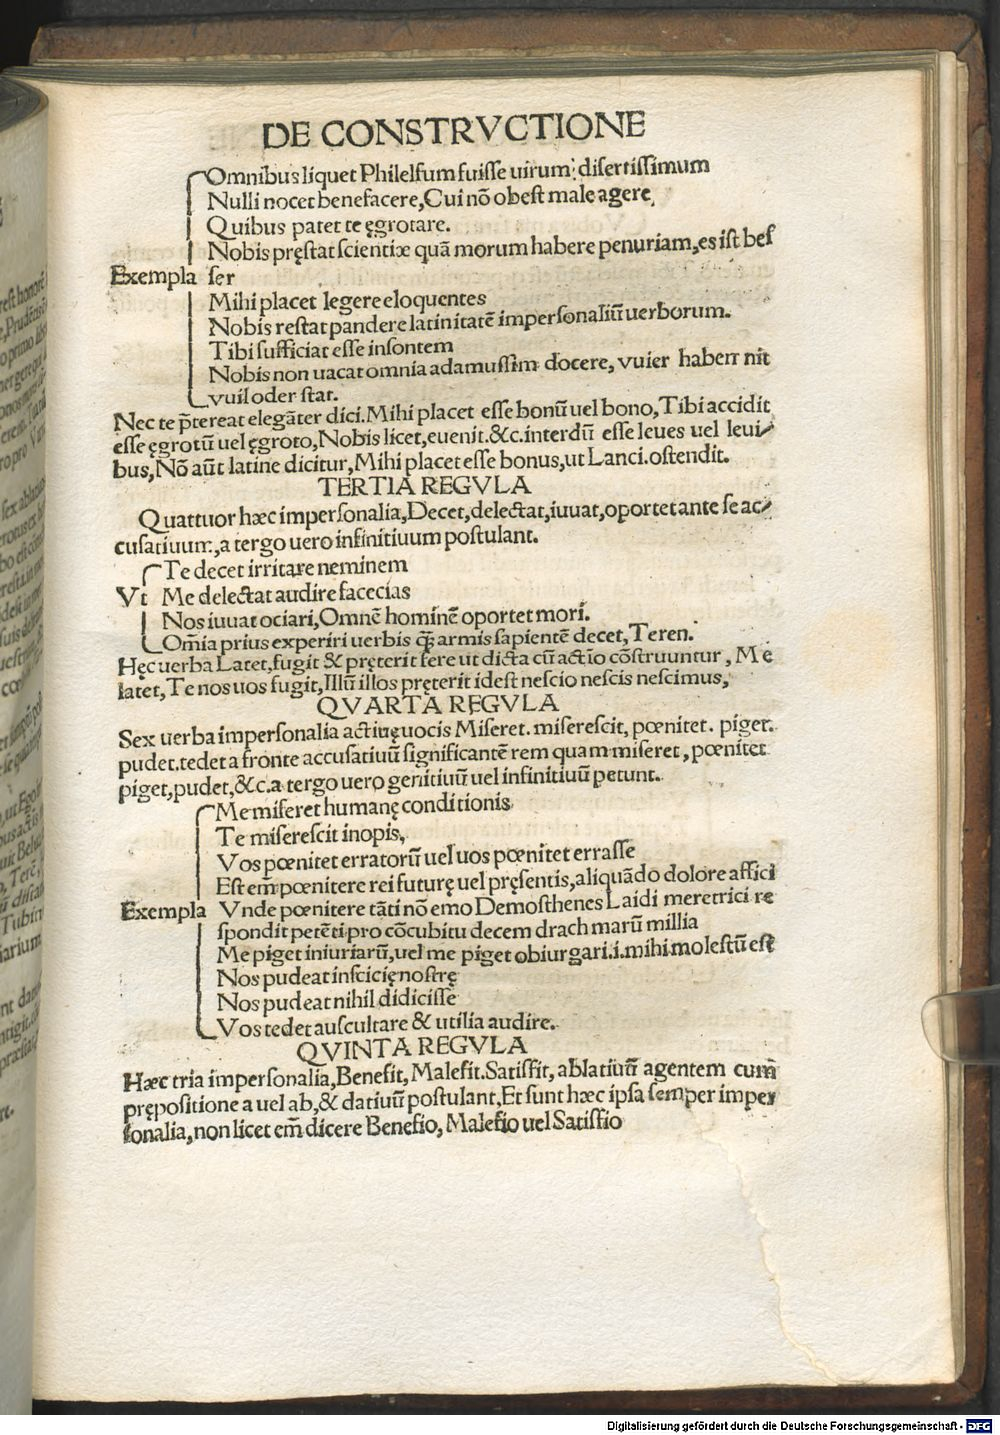 DE CONSTRVCTIONE
Omnibus liquet Philelfum fuisse uirum: disertissimum
Nulli nocet benefacere, Cui nõ obest male agere,
Quibus patet te ęgrotare.
Nobis pręstat scientiæ quã morum habere penuriam, es ist bes
Exempla ser
Mihi placet legere eloquentes
Nobis restat pandere latinitatẽ impersonaliũ uerborum.
Tibi sufficiat esse insontem
Nobis non uacat omnia adamussim docere, vuier habenn nit
vuil oder stat.
Nec te p̃tereat elegãter dici. Mihi placet esse bonũ uel bono, Tibi accidit
esse ęgrotũ uel ęgroto, Nobis licet, euenit. &c. interdũ esse leues uel leui⸗
bus, Nõ aũt latine dicitur, Mihi placet esse bonus, ut Lanci. ostendit.
TERTIA REGVLA
Quattuor hæc impersonalia, Decet, delectat, iuuat, oportet ante se ac⸗
cusatiuum, a tergo uero infinitiuum postulant.
Te decet irritare neminem
Vt Me delectat audire facecias
Nos iuuat ociari, Omnẽ hominẽ oportet mori.
Om̃ia prius experiri uerbis q̃ꝫ armis sapientẽ decet, Teren.
Hęc uerba Latet, fugit & pręterit fere ut dicta cũ actĩo cõstruuntur, Me
latet, Te nos uos fugit, Illũ illos pręterit idest nescio nescis nescimus,
QVARTA REGVLA
Sex uerba impersonalia actiuę uocis Miseret. miserescit, pœnitet. piget.
pudet. tedet a fronte accusatiuũ significantẽ rem quam miseret, pœnitet
piget, pudet, &c. a tergo uero genitiuũ uel infinitiuũ petunt.
Me miseret humanę conditionis
Te miserescit inopis,
Vos pœnitet erratorũ uel uos pœnitet errasse
Est em̃ pœnitere rei futurę uel pręsentis, aliquãdo dolore affici
Exempla Vnde pœnitere tãti nõ emo Demosthenes Laidi meretrici re
spondit petẽti pro cõcubitu decem drachmarũ millia
Me piget iniuriarũ, uel me piget obiurgari .i. mihi molestũ est
Nos pudeat inscicię nostrę
Nos pudeat nihil didicisse
Vos tedet auscultare & utilia audire.
QVINTA REGVLA
Hæc tria impersonalia, Benefit, Malefit. Satisfit, ablatiuũ agentem cum
prępositione a uel ab, & datiuũ postulant, Et sunt hæc ipsa semper imper
sonalia, non licet em̃ dicere Benefio, Malefio uel Satisfio
Digitalisierung gefördert durch die Deutsche Forschungsgemeinschaft - DFG